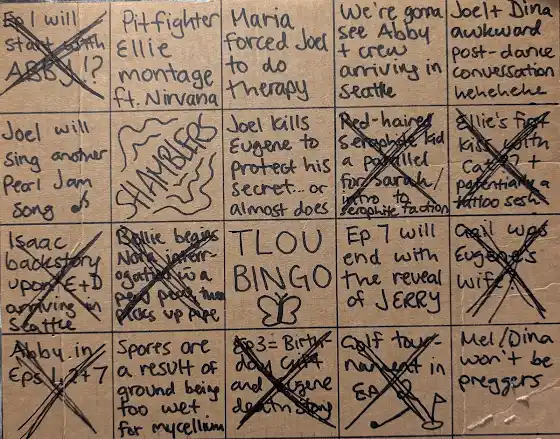 Ep 1 will
start with
ABBY!?
Pitfighter
Ellie
montage
ft. Nirvana
Maria
forced Joel
to do
therapy
We're gonna
see Abby
+ crew
arriving in
Seattle
Joel + Dina
awkward
post-dance
conversation
hehehehe
Joel will
sing another
Pearl Jam
song
SHAMBLERS
Joel kills
Eugene to
protect his
secret... or
almost does
Red-haired
Seraphite kid
a parallel
for Sarah/
intro to
seraphite faction
Ellie's first
kiss with
Cat?? +
potentially a
tattoo sesh
Isaac
backstory
upon E+D
arriving in
Seattle
Ellie begins
Nora interr-
ogation in a
then
picks up pipe
TLOU
BINGO
Ep 7 will
end with
the reveal
of JERRY
Gail was
Eugene's
wife?
Abby in
Eps 1, 2 + 7
Spores are
a result of
ground being
too wet
for mycellium
Ep 3 = Birth-
day Gift
and Eugene
death story
Golf tour-
nament in
Ep
Mel/Dina
won't be
preggers